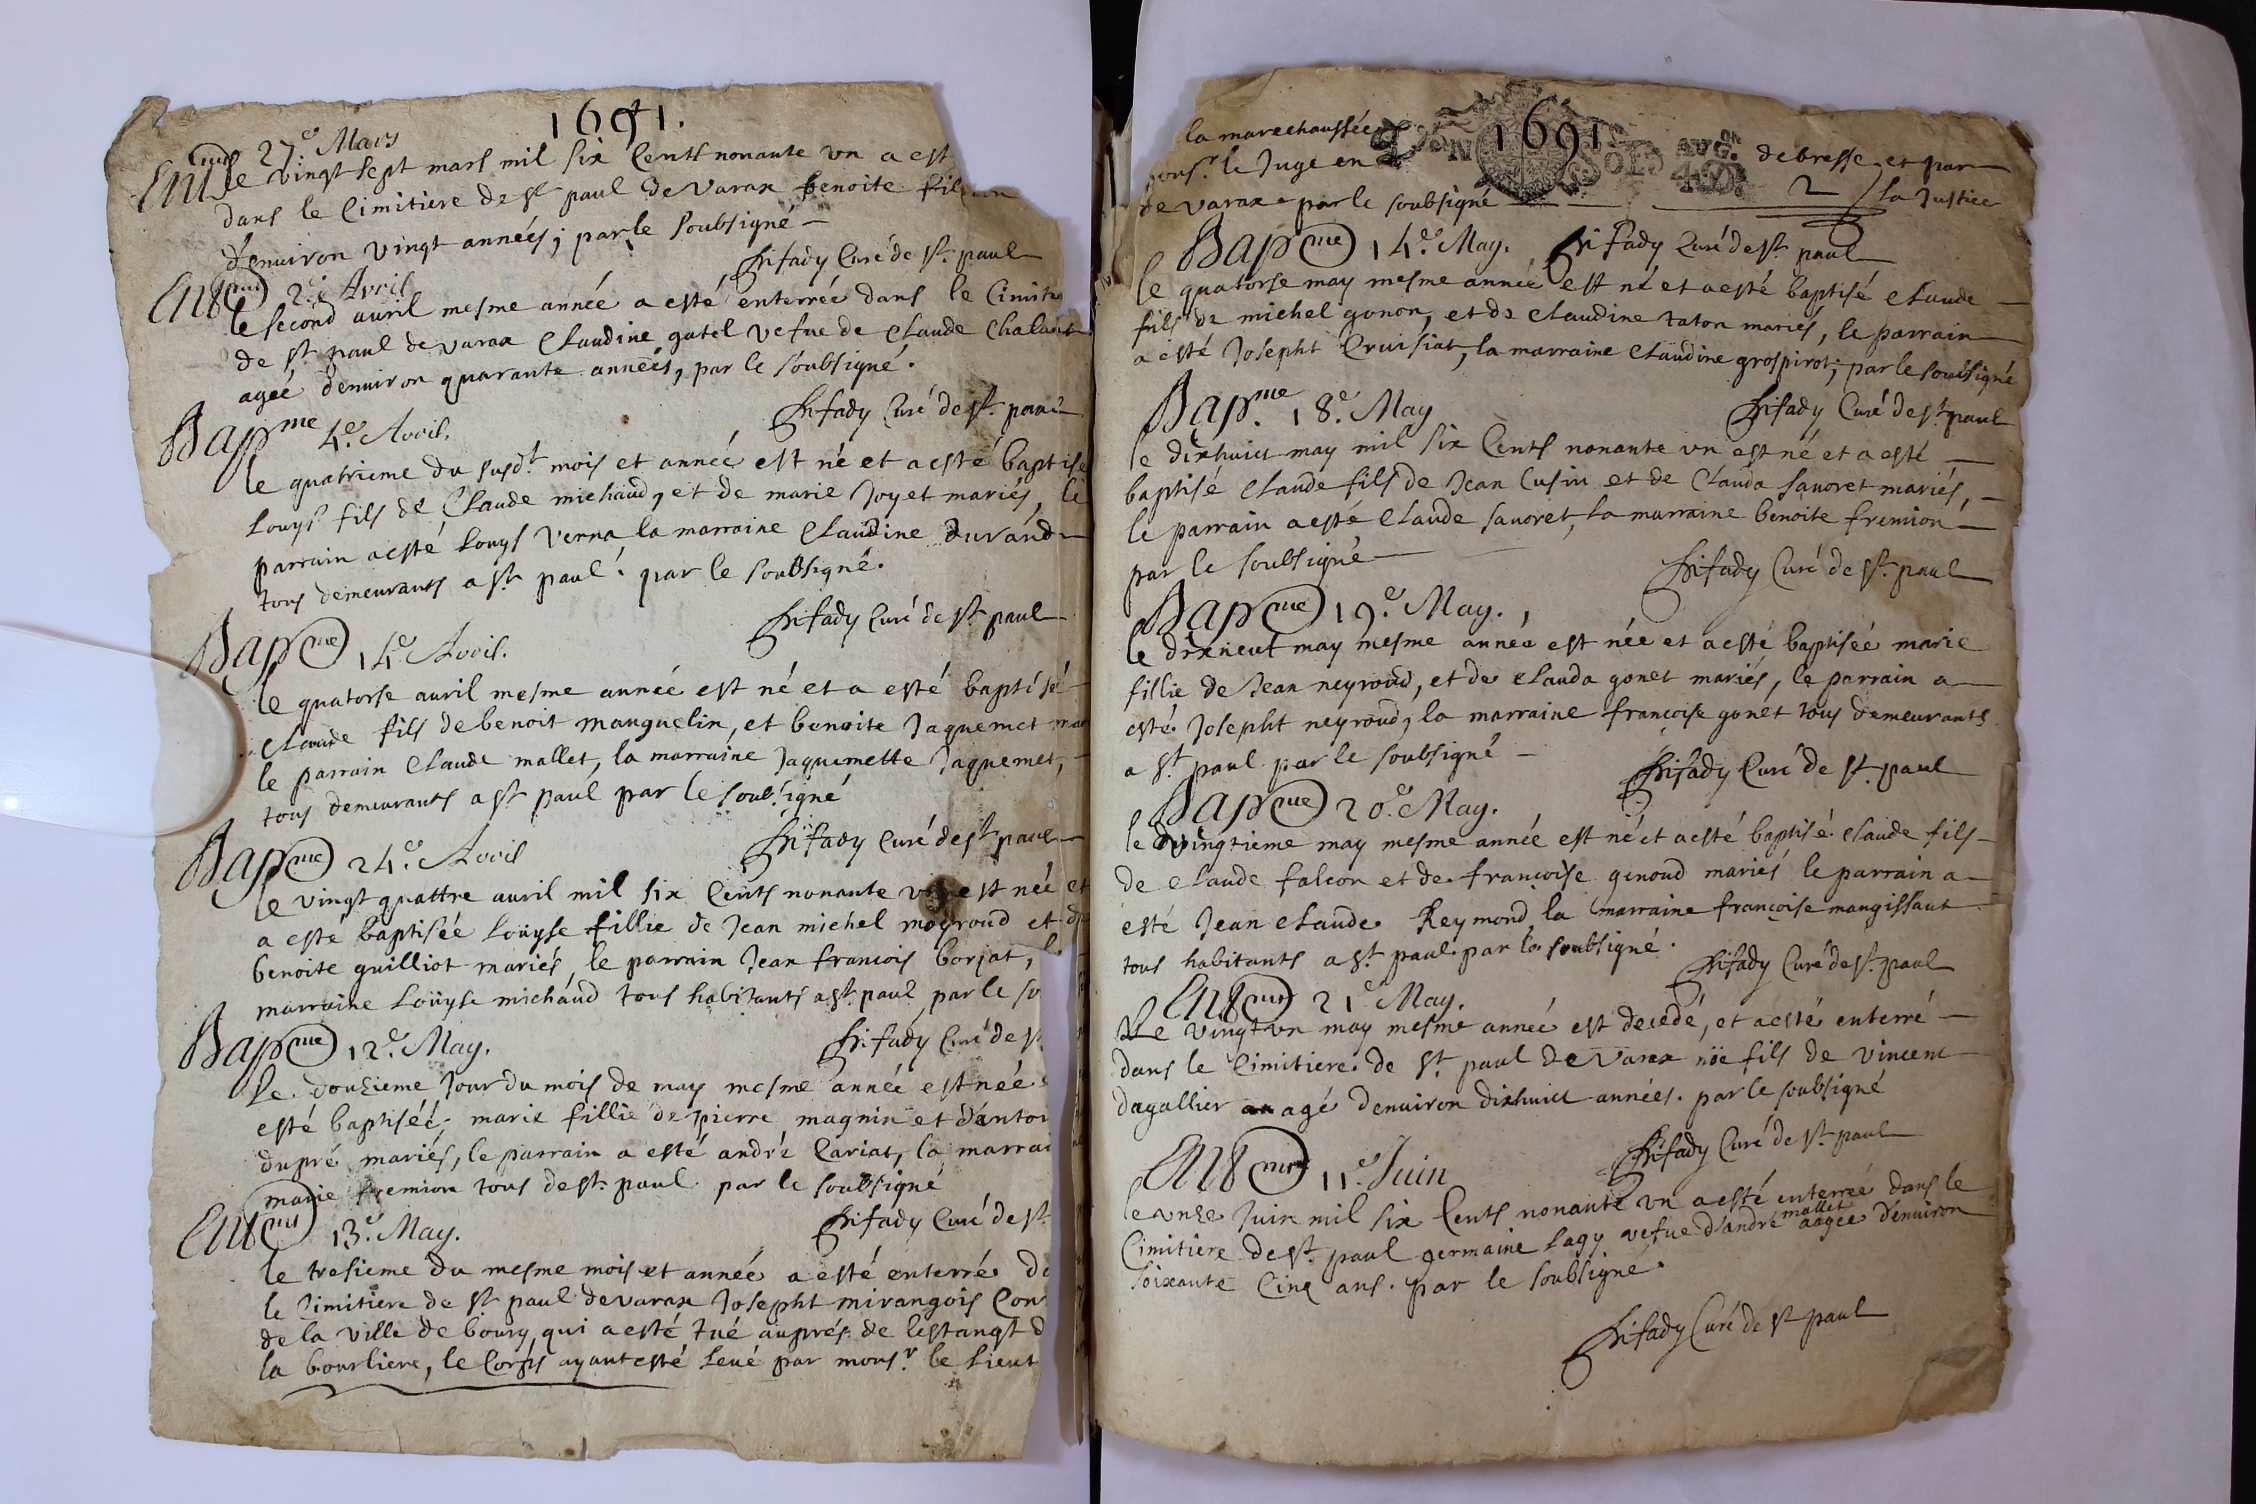 1691.
27e Mars
le vingt sept mars mil six cents nonante un a est
dans le cimitiere de st paul de varax benoite
d'environ vingt années; par le soubsigné
fady curé de st paul
2e Avril
le second avril mesme année a esté enterrée dans le cimiti
de st paul de varax claudine gatel vefue de claude chalant
agée d'environ quarante années, par le soubsigné.
fady curé de st paul
Bapme 4e Avril.
le quatrieme du susdt mois et année est né et a esté baptisé
louys fils de claude michaud, et de marie joyet mariés, le
parrain a esté louys verna la marraine claudine durand
tous demeurants a st paul. par le soubsigné.
fady curé de st paul
Bapme 14e Avril.
le quatorse avril mesme année est né et a esté baptisé
claude fils de benoit manguelin, et benoite jaquemet mar
le parrain claude mallet, la marraine jaquemette jaquemet,
tous demeurants a st paul par le soubsigné
fady curé de st paul
Bapme 24e Avril
le vingt quattre avril mil six cents nonante un est née et
a esté baptisée louyse fillie de jean michel moyroud et d
benoite guilliot mariés, le parrain jean francois borjat, l
marraine louyse michaud tous habitants a st paul par le so
fady curé de st
Bapme 12e May.
le douzieme jour du mois de may mesme année est née e
esté baptisée; marie fillie de pierre magnin et d'anton
dupré mariés, le parrain a esté andré cariat, la marrai
marie fremion tous de st paul par le soubsigné
fady curé de st
13e May.
le tresieme du mesme mois et année a esté enterré da
le cimitiere de st paul de varax josepht mirangois con
de la ville de bourg, qui a esté tué auprés de lestangt d
la bourliere, le corps ayant esté levé par monsr le lieut
1691
la marechaussée de bresse et par
monsr le juge en la justice
de varax par le soubsigné
fady curé de st paul
Bapme 14e May.
le quatorse may mesme année est né et a esté baptisé claude
fils de michel gonon, et de claudine taton mariés, le parrain
a esté josepht cruisiat, la marraine claudine grospirot; par le soubsigné
fady curé de st paul
Bapme 18e May
le dixhuict may mil six cents nonante un est né et a esté
baptisé claude fils de jean cusin et de clauda savoret mariés,
le parrain a esté claude savoret, la marraine benoite fremion
par le soubsigné
fady curé de st paul
Bapme 19e May.
le dixneuf may mesme année est née et a esté baptisée marie
fillie de jean neyroud, et de clauda gonet mariés, le parrain a
esté josepht neyroud, la marraine francoise gonet tous demeurants
a st paul par le soubsigné
fady curé de st paul
Bapme 20e May.
le vingtieme may mesme année est né et a esté baptisé claude fils
de claude falcon et de francoise genoud mariés le parrain a
esté jean claude Reymond la marraine françoise mangissaut
tous habitants a st paul par le soubsigné.
fady curé de st paul
21e May.
Le vingt un may mesme année est decedé, et a esté enterré
dans le cimitiere de st paul de varax noë fils de vincent
dagallier agé d'environ dixhuict années. par le soubsigné
fady curé de st paul
11e Juin
le unze juin mil six cents nonante un a esté enterrée dans le
cimitiere de st paul germaine lagy vefue d'andré mallet aagée d'environ
soixante cinq ans. par le soubsigné.
fady curé de st paul